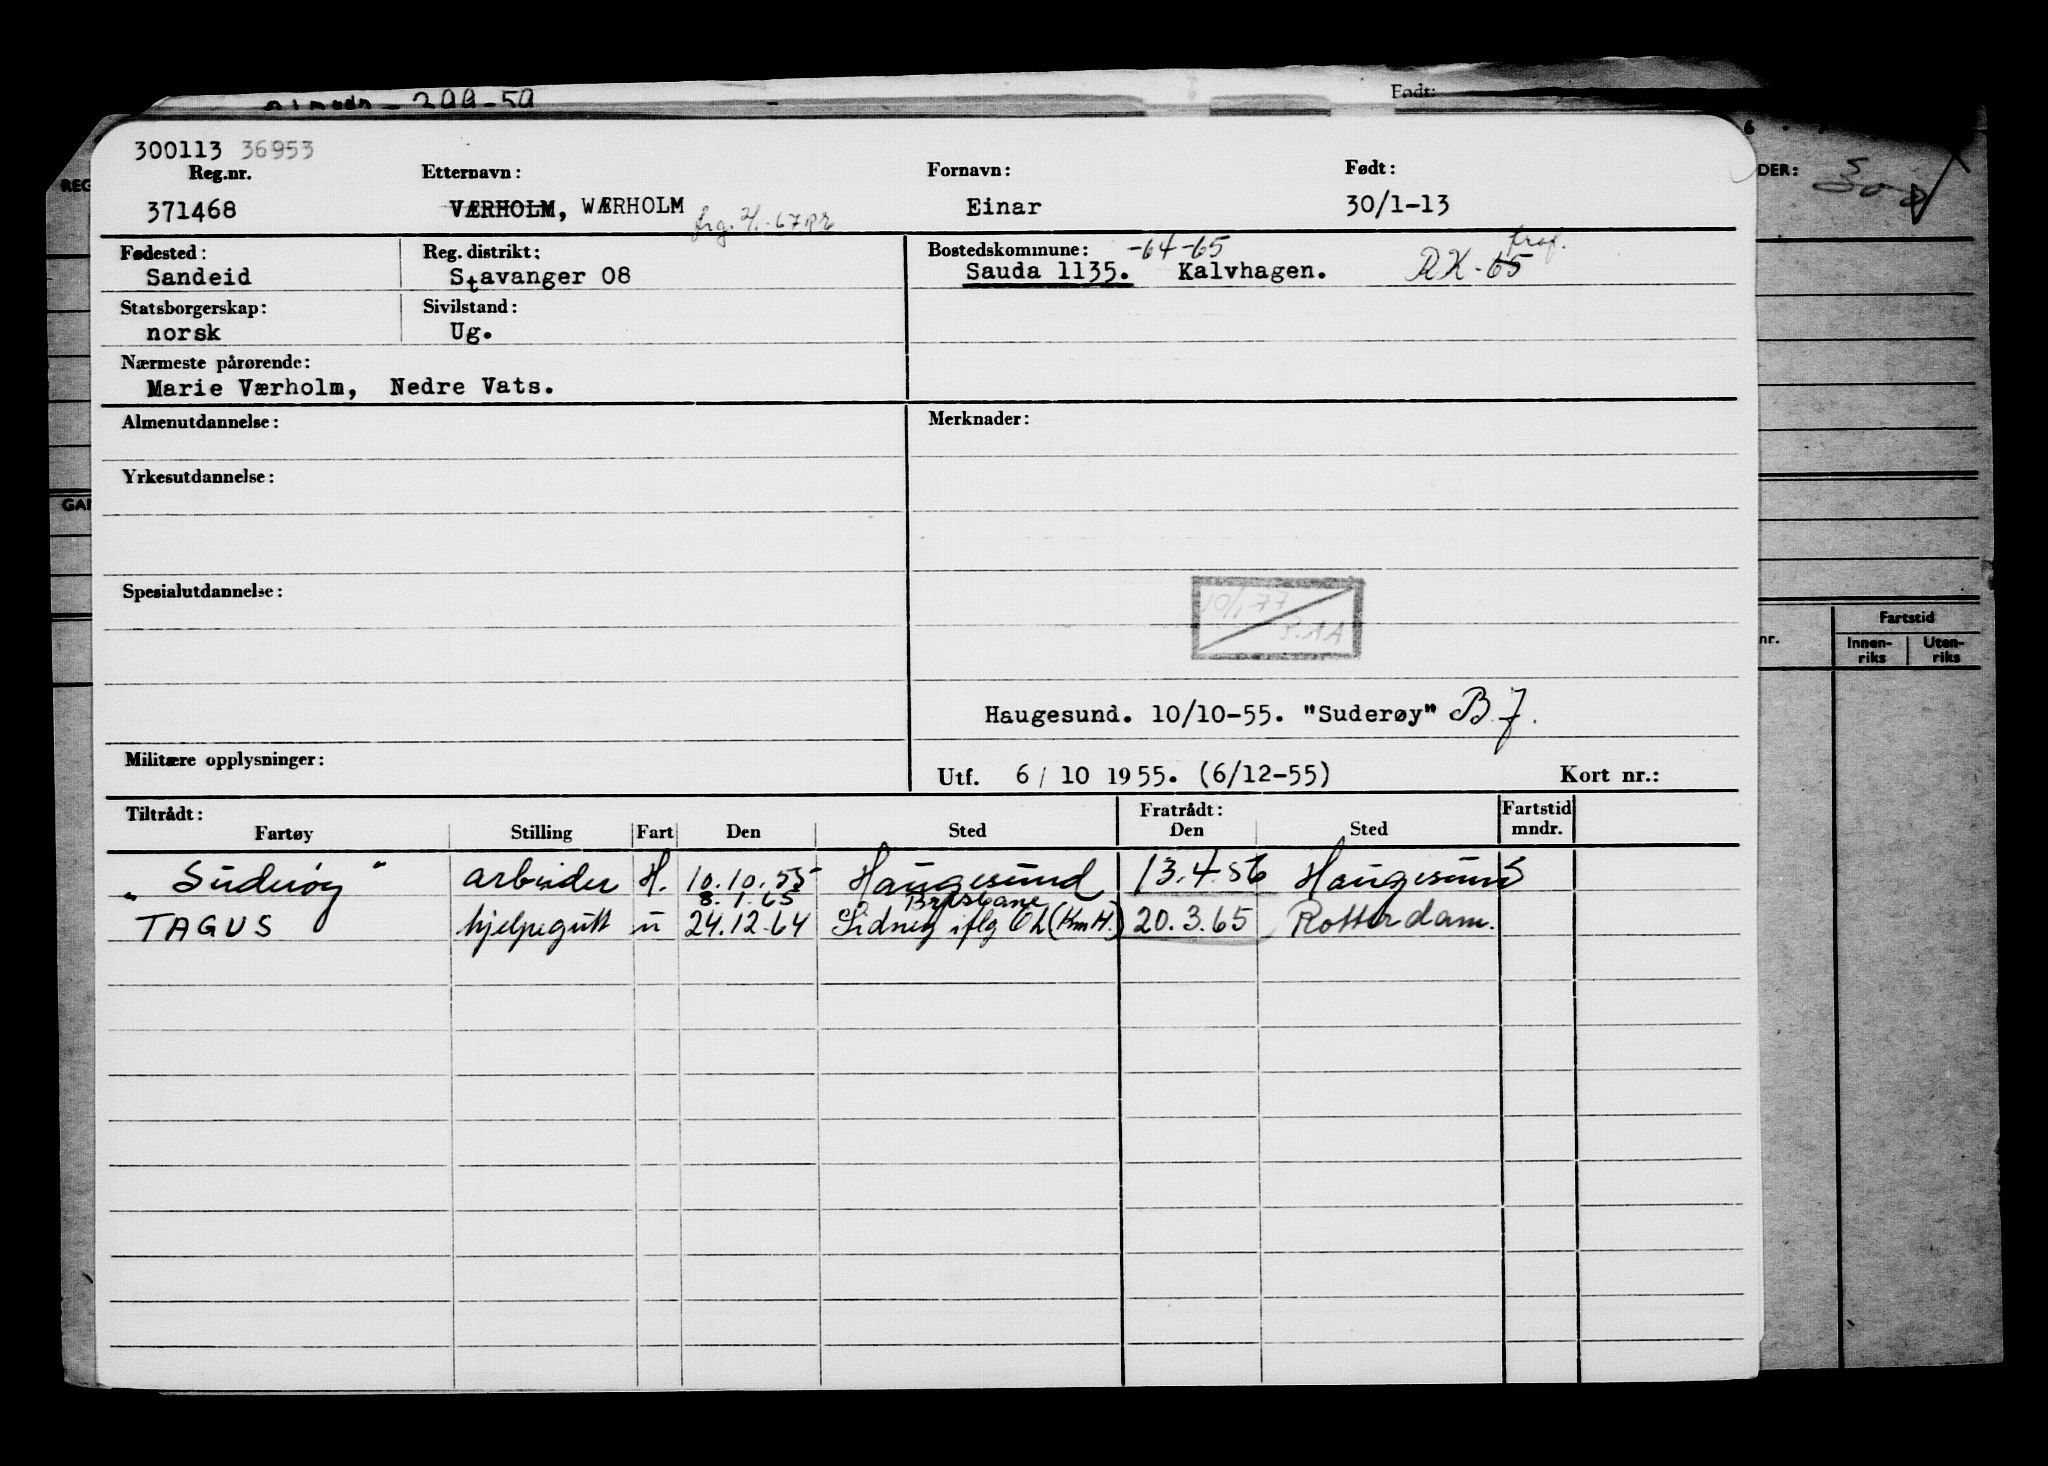 300113 36953
Reg.nr. Etternavn: Fornavn: Født:
371468 VÆRHOLM, WÆRHOLM Einar 30/1-13
Fødested: Reg. distrikt: Bostedskommune: -64-65
Sandeid Stavanger 08 Sauda 1135. Kalvhagen. RK-65
Statsborgerskap: Sivilstand:
norsk Ug.
Nærmeste pårørende:
Marie Værholm, Nedre Vats.
Almenutdannelse: Merknader:
Yrkesutdannelse:
Spesialutdannelse:
10/1 77
Haugesund. 10/10-55. "Suderøy" B.J.
Militære opplysninger:
Utf. 6/10 1955. (6/12-55) Kort nr.:
Tiltrådt: Fratrådt: Fartstid
Fartøy Stilling Fart Den Sted Den Sted mndr.
"Suderøy" arbeider H. 10.10.55 Haugesund 13.4.56 Haugesund
8.1.65 Brisbane
TAGUS hjelpegutt u 24.12.64 Sidney iflg OL (KmH.) 20.3.65 Rotterdam.
Født:
DER:
REG
GAN
nr.
Fartstid
Innen-riks Uten-riks